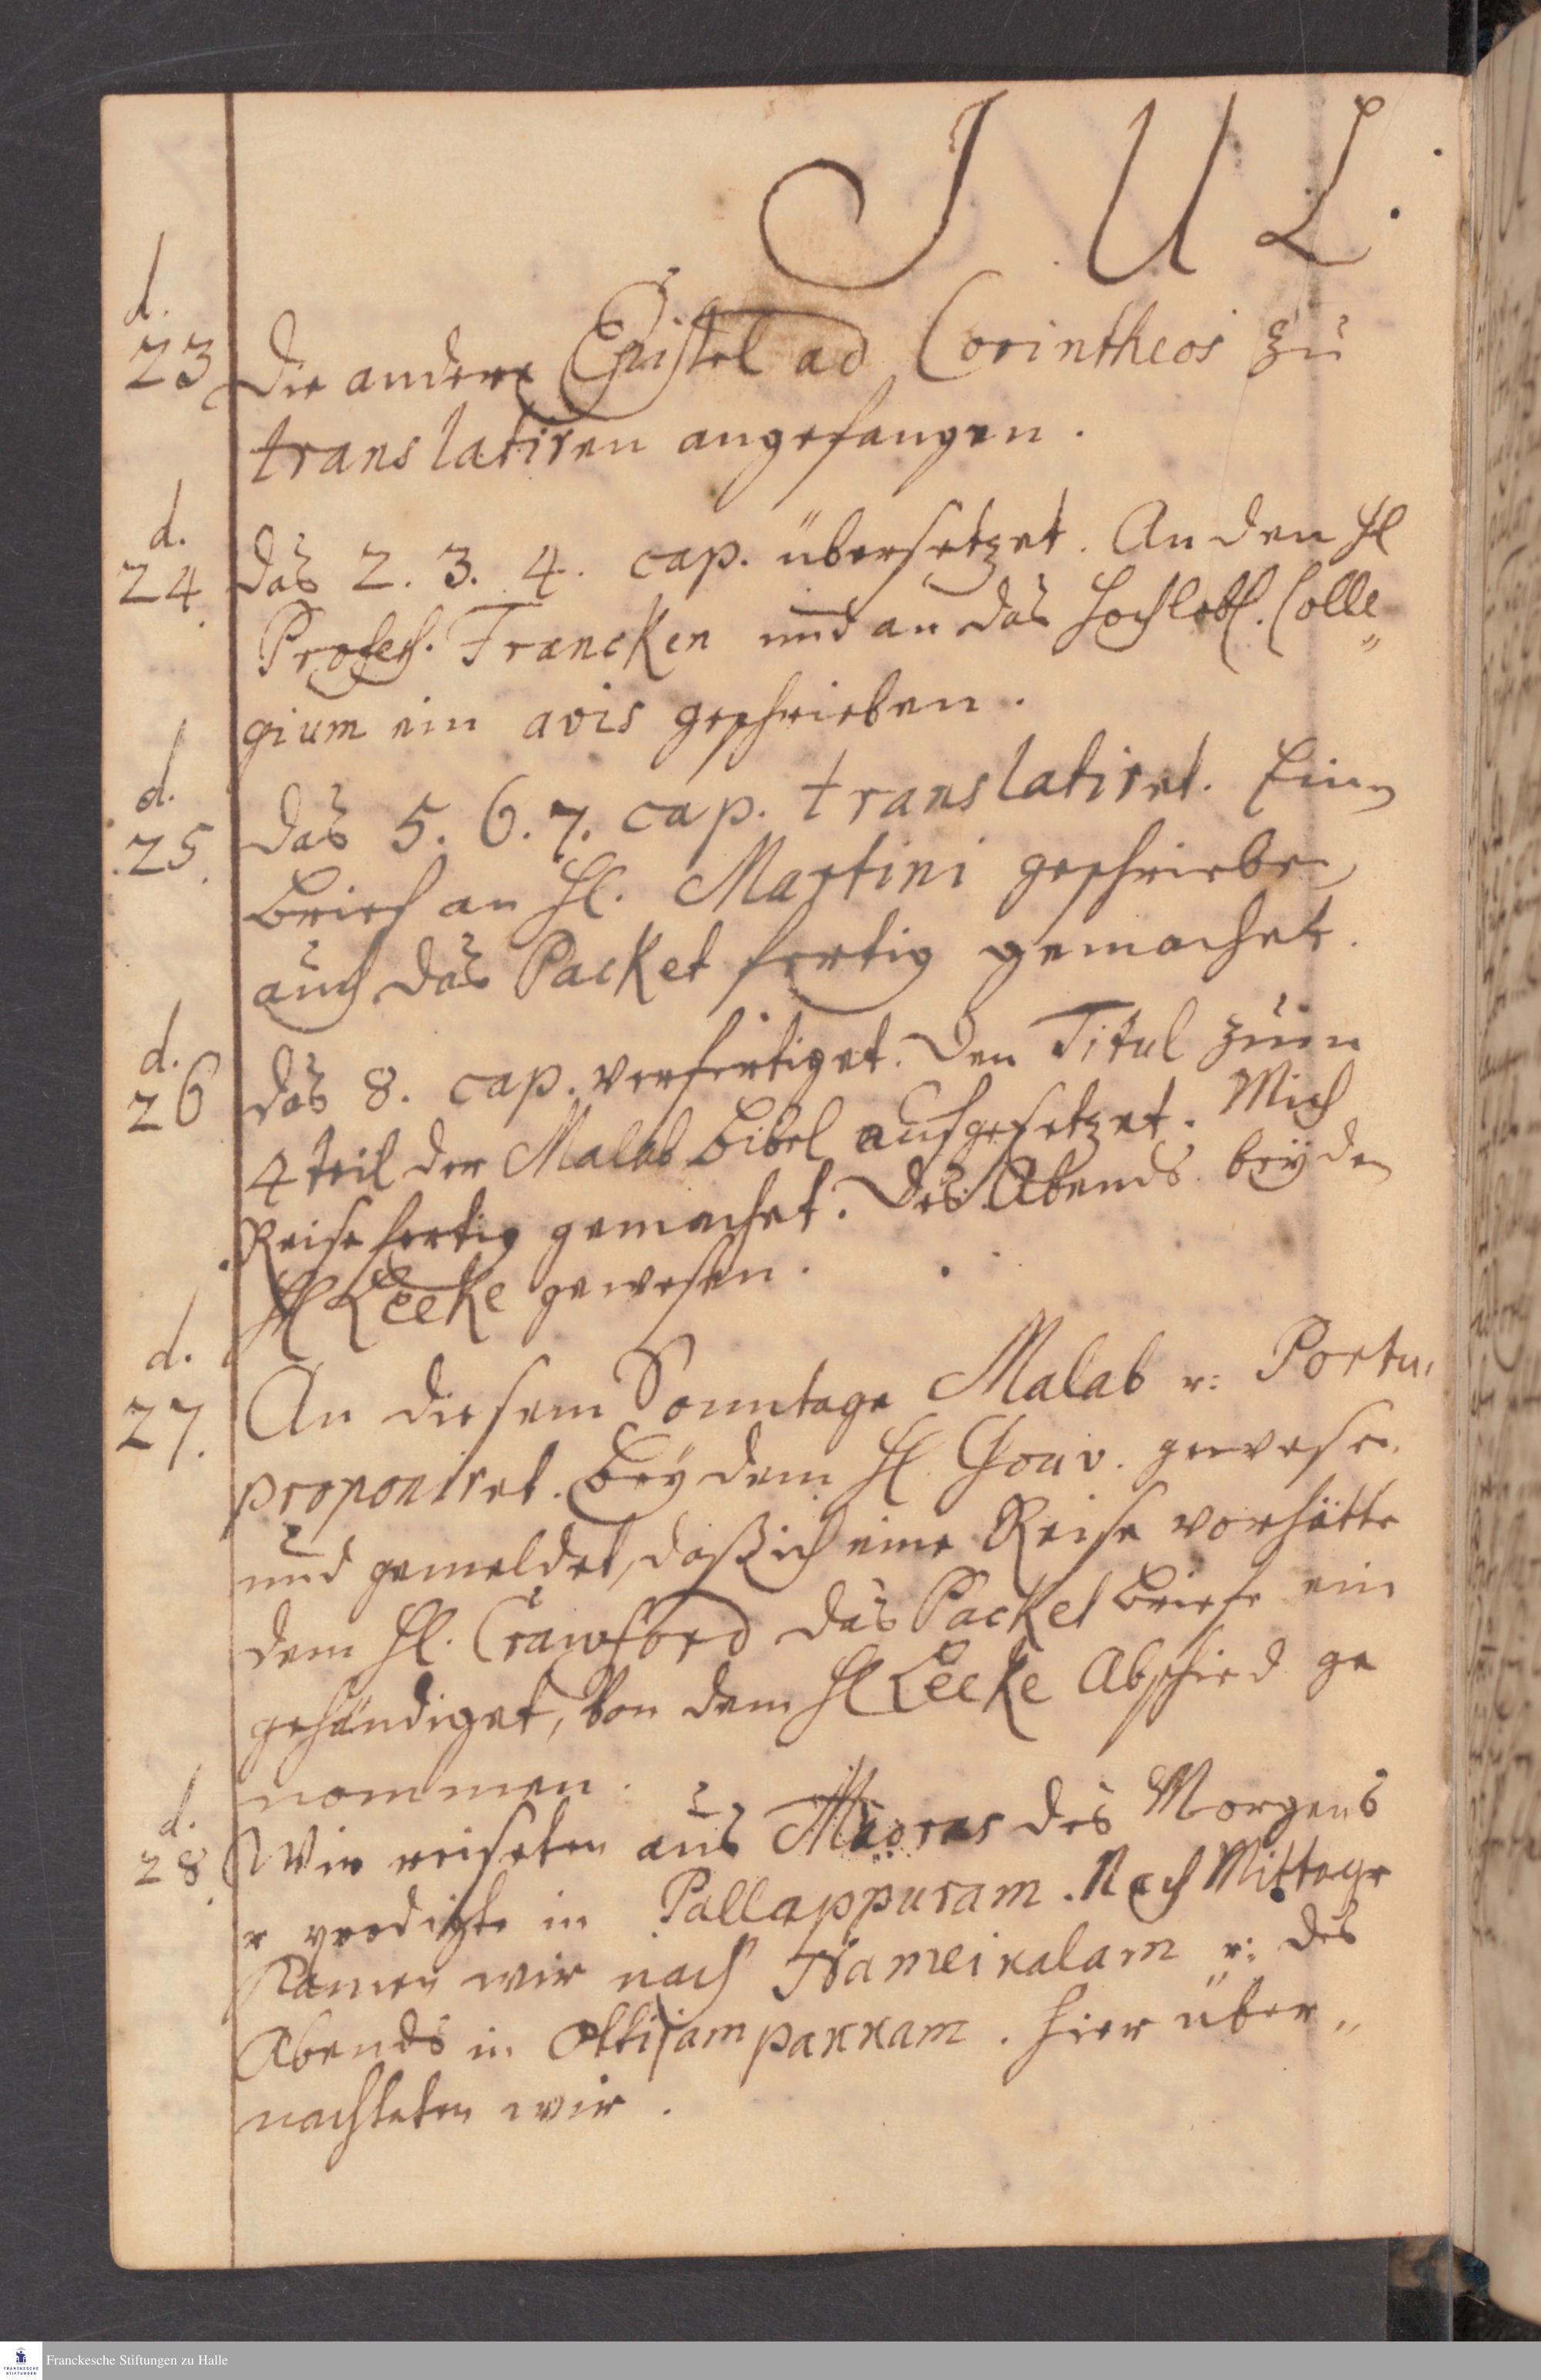 JUL.
d.
23 Die andere Epistel ad Corintheos zu
translatiren angefangen.
d.
24 Das 2. 3. 4. cap. übersetzet. An den H
Profess. Francken und an das Hochlobl. Colle„
gium ein avis geschrieben.
d.
25. Das 5. 6. 7. cap. translatiret. Einen
Brief an H. Martini geschrieben,
auch das Packet fertig gemachet.
d.
26 Das 8. cap. verfertiget. Den Titul zum
4 teil der Malab Bibel aufgesetzet. Mich
Reise fertig gemachet. Des Abends bey den
H Leeke gewesen.
d.
27. An diesem Sonntage Malab u: Portu.
proponiret. Bey dem H. Gouv. gewesen.
und gemeldet, daß ich eine Reise vorhätte
dem H. Crawford das Packet Briefe ein
gehändiget, von dem H Leeke Abschied ge
nommen.
d.
28. Wir reiseten aus Madras des Morgens
u predigte in Pallappuram. Nach Mittage
kamen wir nach u: des
Abends in . Hier über„
nachteten wir.
Franckesche Stiftungen zu Halle
FRANCKESCHE
STIFTUNGEN